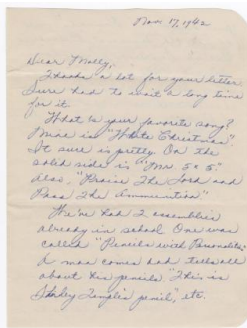 Nov. 17, 1942
Dear Molly,
Thanks a lot for your letter
Sure had to wait a long time
for it.
What is your favorite song?
Mine is "White Christmas".
It sure is pretty. On the
solid side is "Mr. 5 x 5."
Also, "Praise The Lord and
Pass The Ammunition."
We've had 2 assemblies
already in school. One was
called "Pencils with Personalities"
A man comes and tells all
about his pencils. "This is
Shirley Temple's pencil", etc.